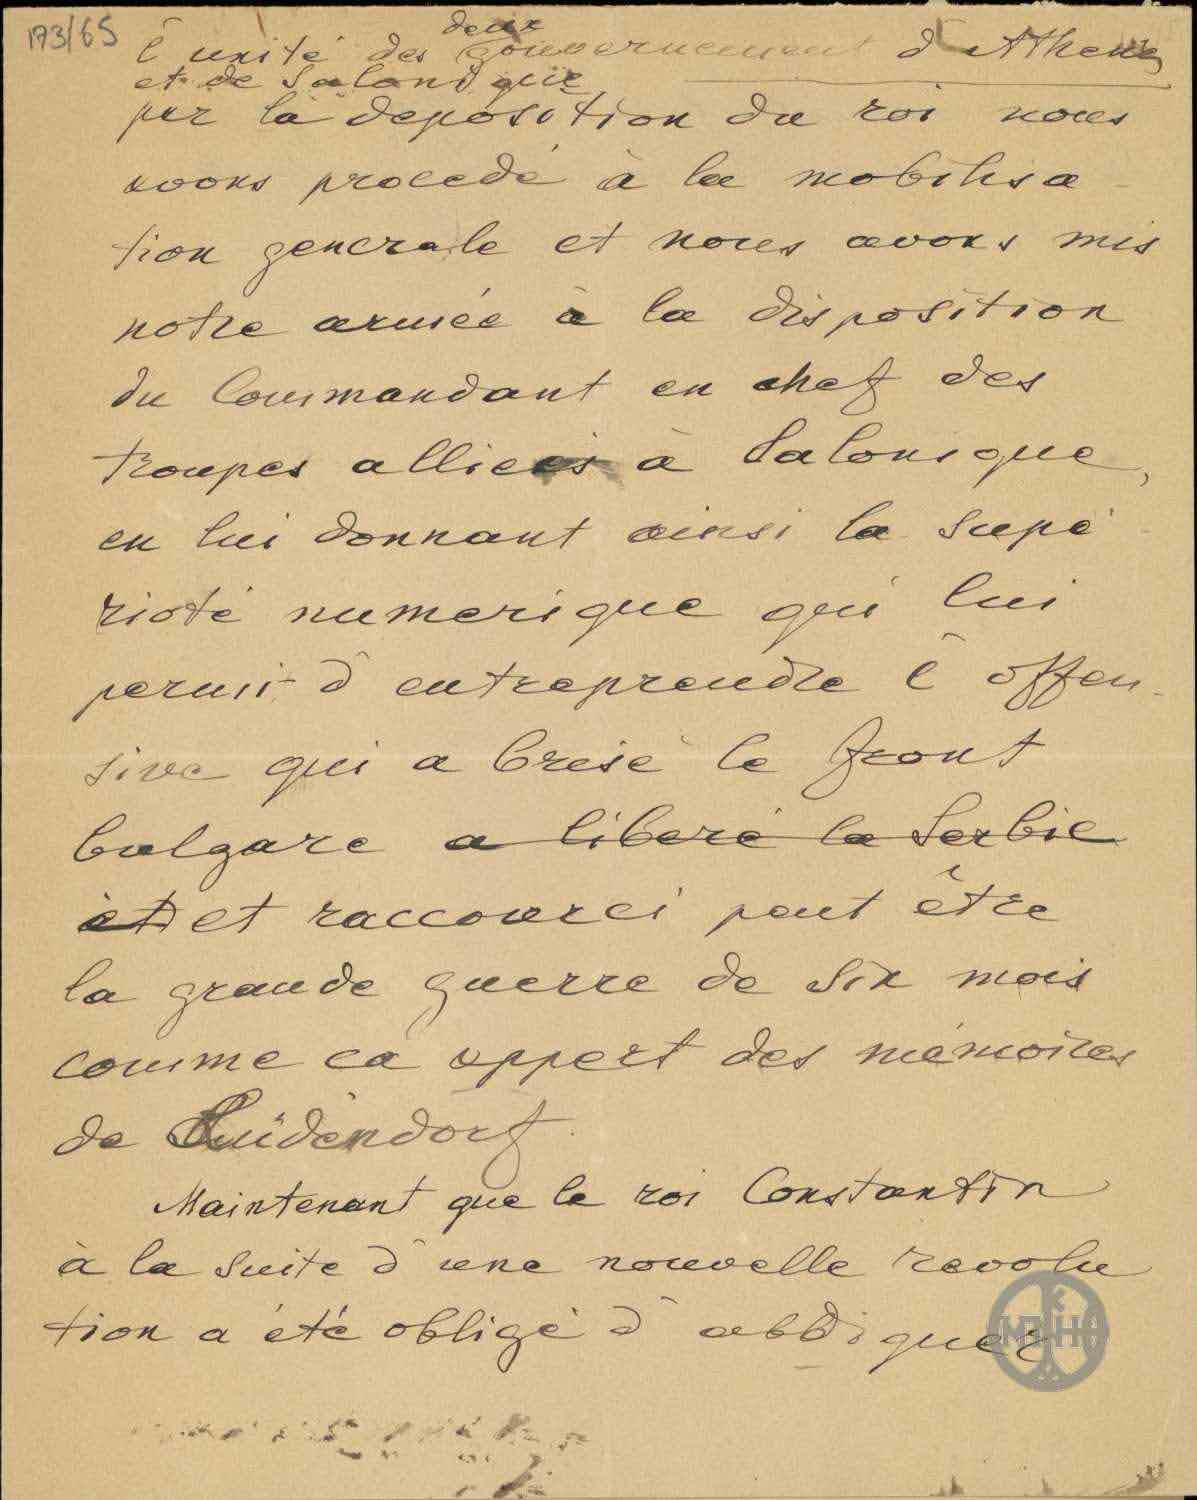 173/65
deux
l'unité des gouvernement d'Athenes
et de Salonique
par la deposition du roi nous
avons procedé à la mobilisa-
tion generale et nous avons mis
notre armée à la disposition
du Commandant en chef des
troupes alliees à Salonique,
en lui donnant ainsi la supé-
rioté numerique qui lui
permit d'entreprendre l'offen-
sive qui a brisé le front
bulgare a liberé la Serbie
et et raccourci peut être
la grande guerre de six mois
comme ca appert des mémoires
de Ludendorf
Maintenant que le roi Constantin
à la suite d'une nouvelle revolu
tion a été obligé d'abdiquer